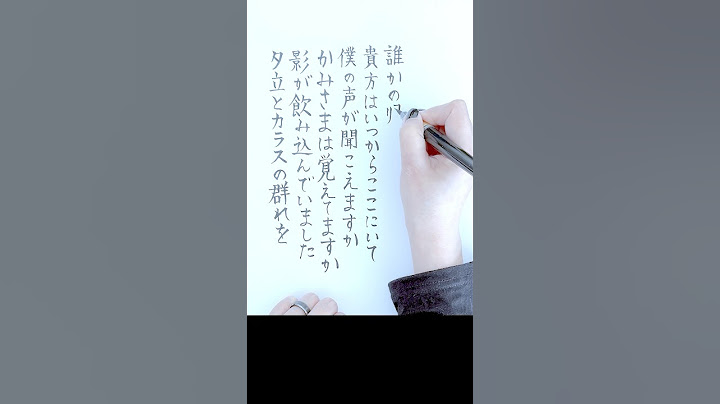 夕立とカラスの群れを
影が飲み込んでいました
かみさまは覚えてますか
僕の声が聞こえますか
貴方はいつからここにいて
誰かの